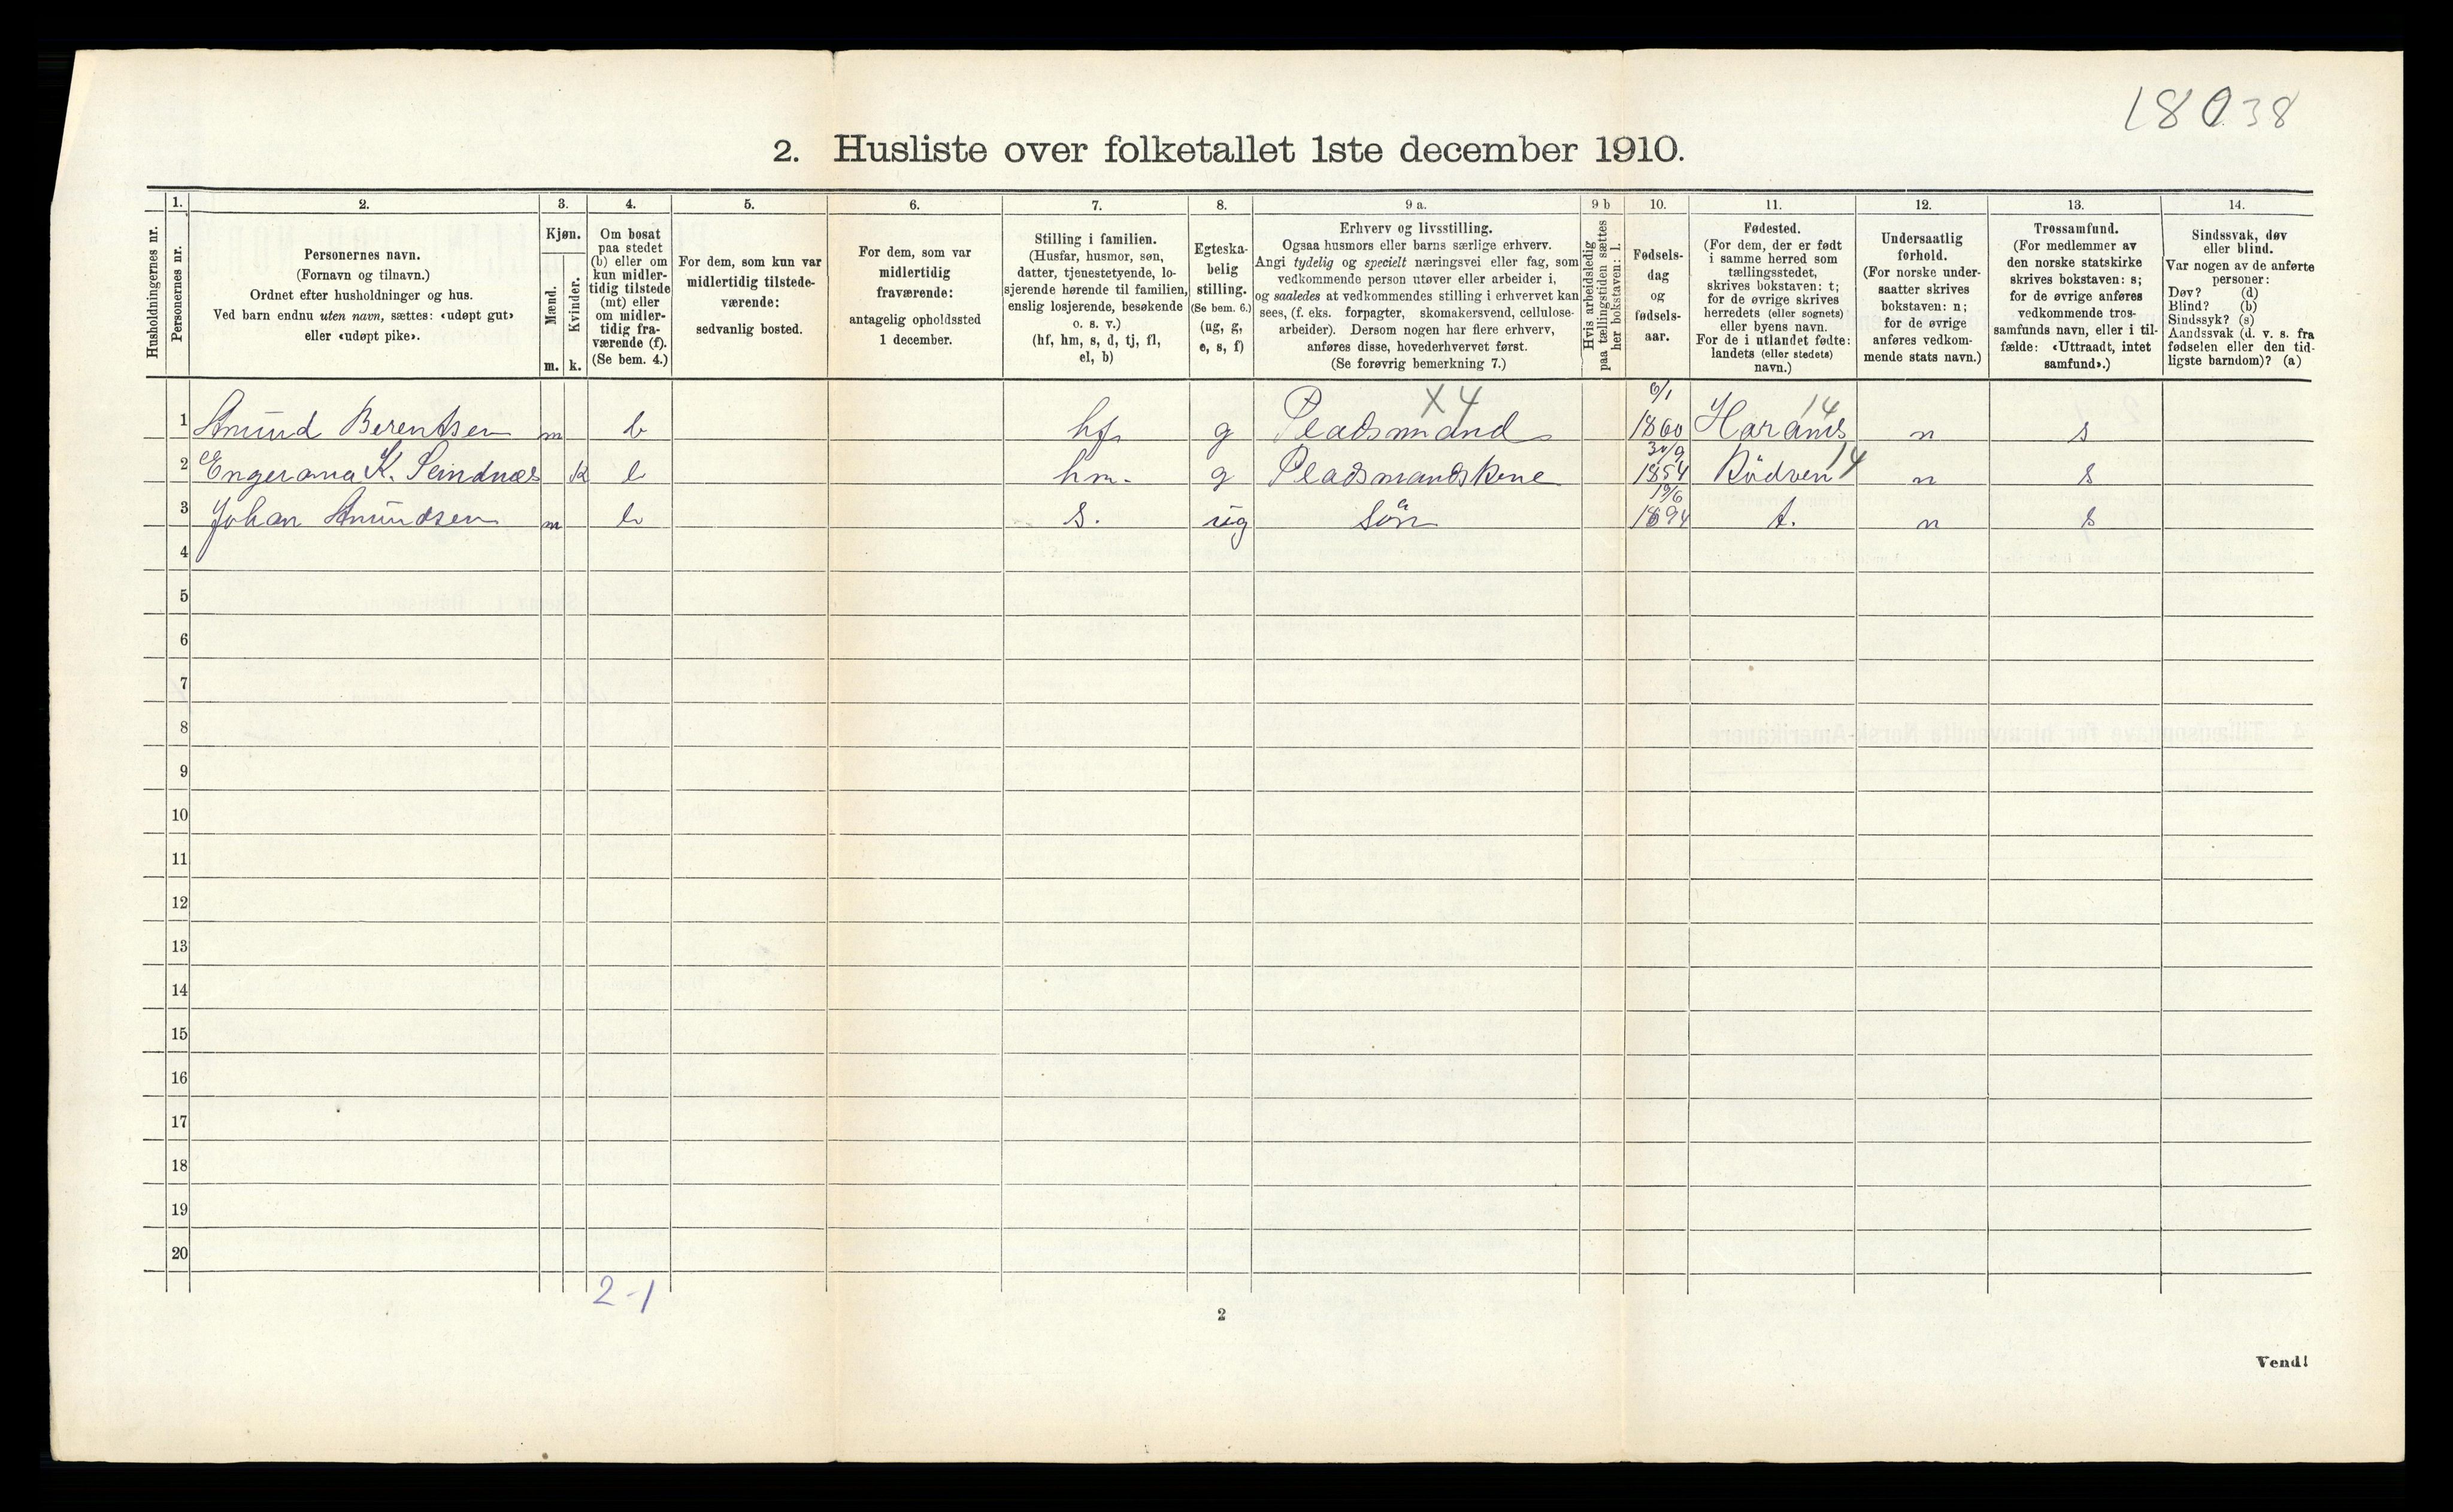 18038
2. Husliste over folketallet 1ste december 1910.
Husholdningernes nr.
1.
Personernes nr.
2.
Personernes navn.
(Fornavn og tilnavn.)
Ordnet efter husholdninger og hus.
Ved barn endnu uten navn, sættes: «udøpt gut»
eller «udøpt pike».
3.
Kjøn.
Mænd.
m.
Kvinder.
k.
4.
Om bosat
paa stedet
(b) eller om
kun midler-
tidig tilstede
(mt) eller
om midler-
tidig fra-
værende (f).
(Se bem. 4.)
5.
For dem, som kun var
midlertidig tilstede-
værende:
sedvanlig bosted.
6.
For dem, som var
midlertidig
fraværende:
antagelig opholdssted
1 december.
7.
Stilling i familien.
(Husfar, husmor, søn,
datter, tjenestetyende, lo-
sjerende hørende til familien,
enslig losjerende, besøkende
o. s. v.)
(hf, hm, s, d, tj, fl,
el, b)
8.
Egteska-
belig
stilling.
(Se bem. 6.)
(ug, g,
e, s, f)
9 a.
Erhverv og livsstilling.
Ogsaa husmors eller barns særlige erhverv.
Angi tydelig og specielt næringsvei eller fag, som
vedkommende person utøver eller arbeider i,
og saaledes at vedkommendes stilling i erhvervet kan
sees, (f. eks. forpagter, skomakersvend, cellulose-
arbeider). Dersom nogen har flere erhverv,
anføres disse, hovederhvervet først.
(Se forøvrig bemerkning 7.)
9 b
Hvis arbeidsledig
paa tællingstiden sættes
her bokstaven: l.
10.
Fødsels-
dag
og
fødsels-
aar.
11.
Fødested.
(For dem, der er født
i samme herred som
tællingsstedet,
skrives bokstaven: t;
for de øvrige skrives
herredets (eller sognets)
eller byens navn.
For de i utlandet fødte:
landets (eller stedets)
navn.)
12.
Undersaatlig
forhold.
(For norske under-
saatter skrives
bokstaven: n;
for de øvrige
anføres vedkom-
mende stats navn.)
13.
Trossamfund.
(For medlemmer av
den norske statskirke
skrives bokstaven: s;
for de øvrige anføres
vedkommende tros-
samfunds navn, eller i til-
fælde: «Uttraadt, intet
samfund».)
14.
Sindssvak, døv
eller blind.
Var nogen av de anførte
personer:
Døv? (d)
Blind? (b)
Sindssyk? (s)
Aandssvak (d. v. s. fra
fødselen eller den tid-
ligste barndom)? (a)
X4 6/1 14
1 Amund Berentsen m b hf. g Pladsmand 1860 Harams n s
30/9 14
2 Engerana K. k b hm. g Pladsmandskone 1854 Rödven n s
19/6
3 Johan Amundsen m b s. ug sön 1894 t. n s
4
5
6
7
8
9
10
11
12
13
14
15
16
17
18
19
20
2-1
2
Vend!